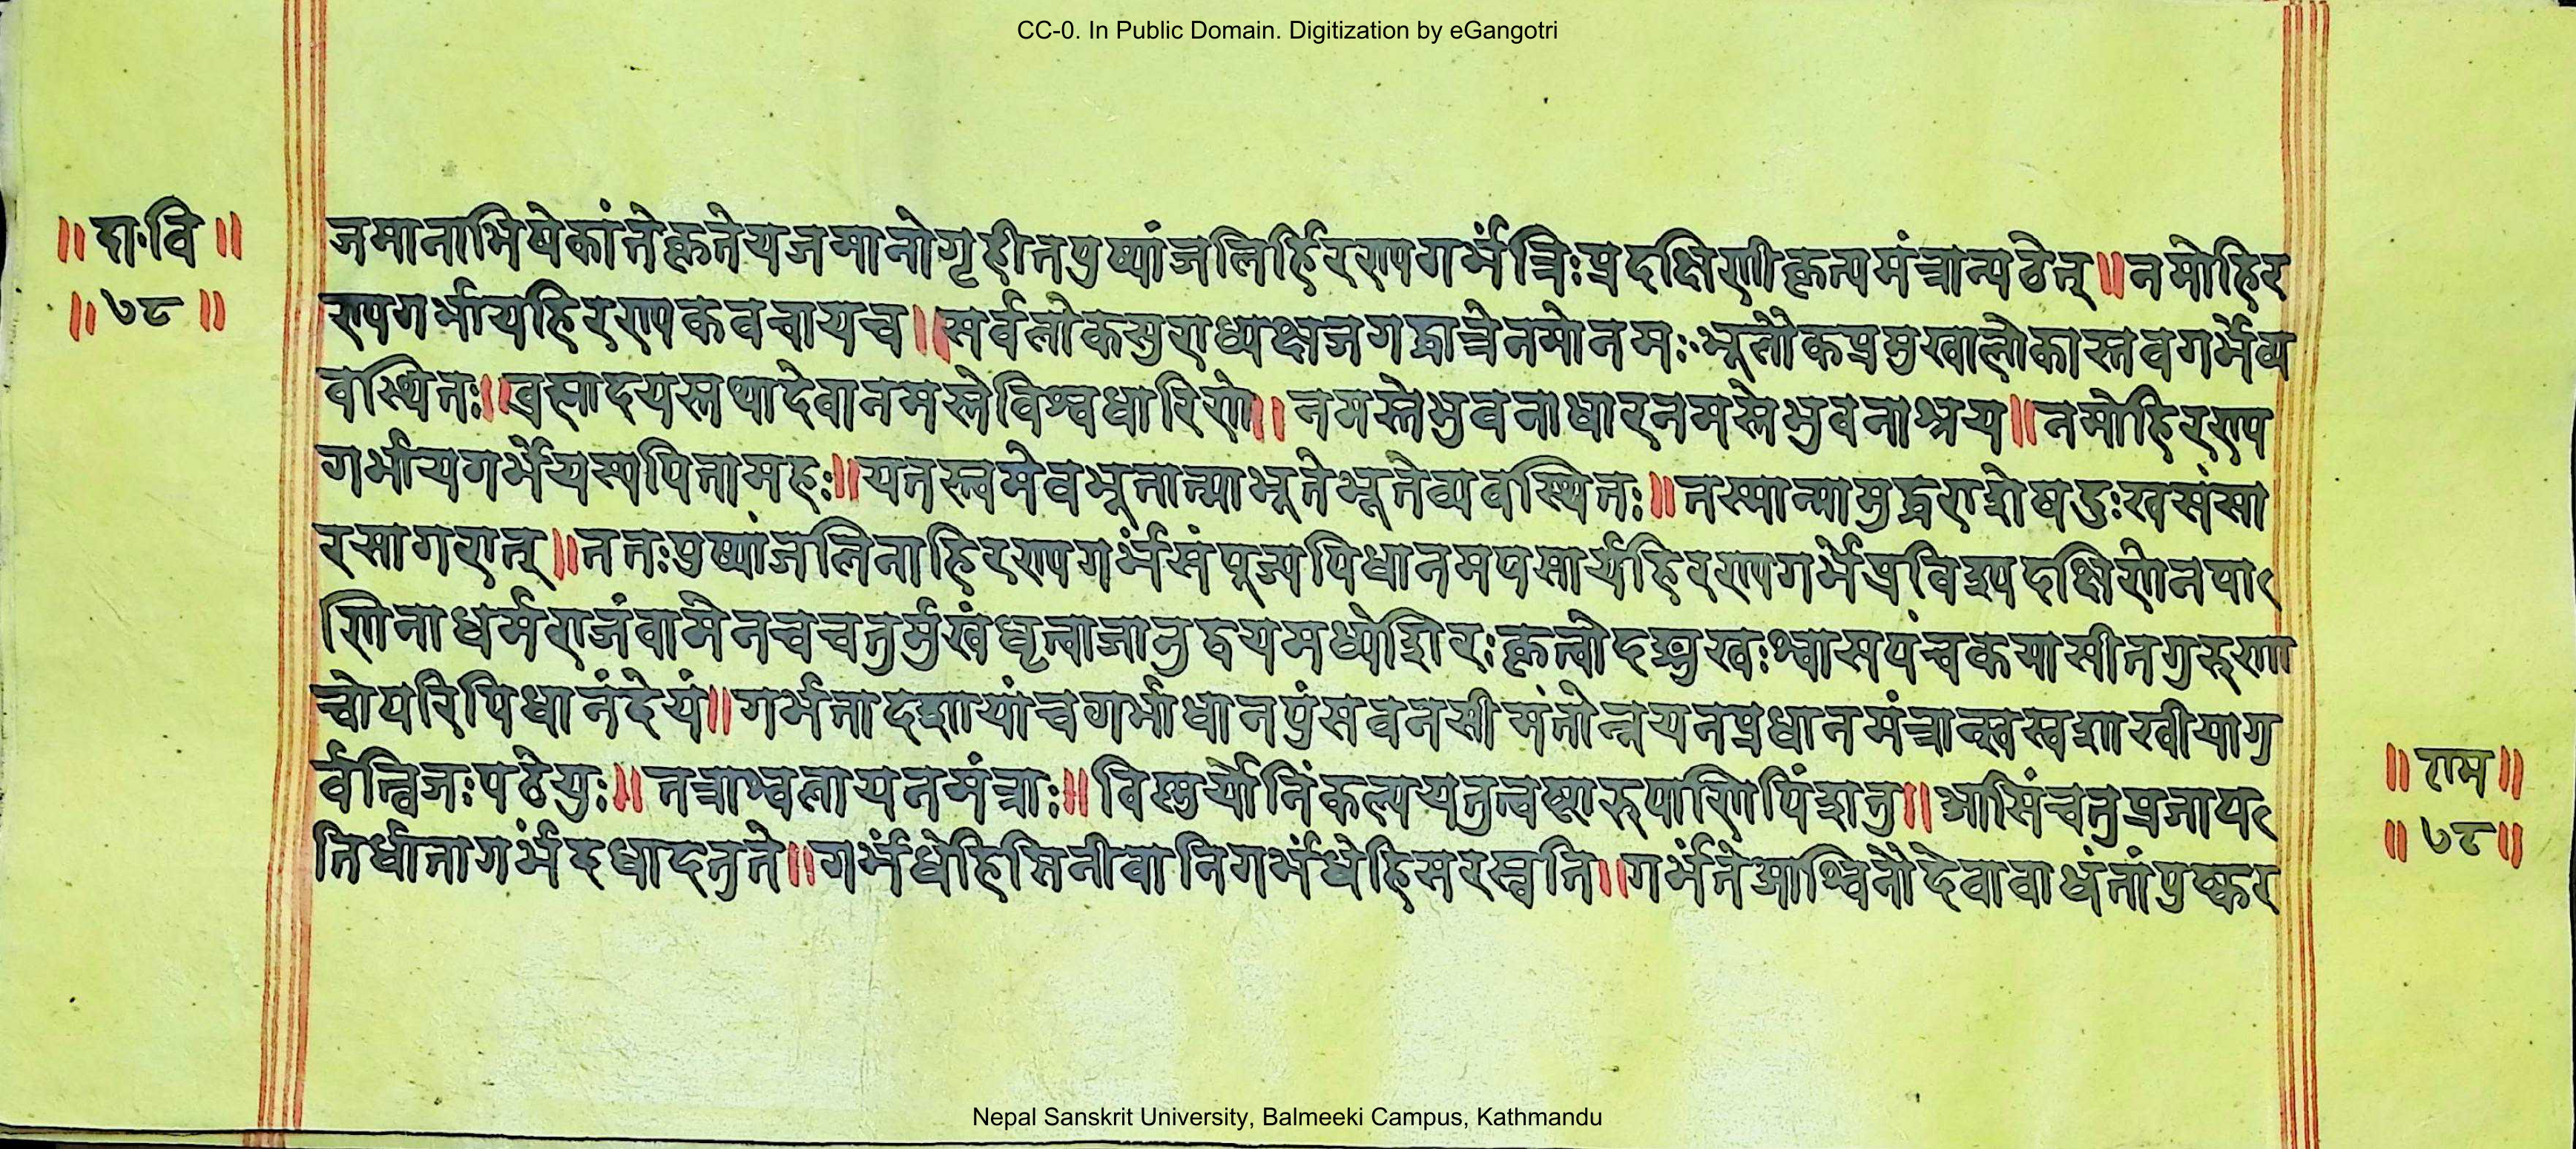 CC-0. In Public Domain. Digitization by eGangotri
॥दा·वि॥
॥७८॥
जमानाभिषेकांतेकृतेयजमानोगृहीतपुष्पांजलिर्हिरण्यगर्भंत्रिःप्रदक्षिणीकृत्यमंत्रान्पठेत्॥नमोहिर
ण्यगर्भायहिरण्यकवचायच॥सर्वलोकसुराध्यक्षजगद्धात्रेनमोनमः॰भूर्लोकप्रमुखालोकास्तवगर्भेव्य
वस्थितः॥ब्रह्मादयस्तथादेवानमस्तेविश्वधारिणे॥नमस्तेभुवनाधारनमस्तेभुवनाश्रय॥नमोहिरण्य
गर्भायगर्भेयस्यपितामहः॥यतस्त्वमेवभूतात्माभूतेभूतेव्यवस्थितः॥तस्मान्मामुद्धराशेषदुःखसंसा
रसागरात्॥ततःपुष्पांजलिनाहिरण्यगर्भंसंपूज्यपिधानमपसार्यहिरण्यगर्भेप्रविश्यदक्षिणेनपा
णिनाधर्मराजंवामेनचचतुर्मुखंधृत्वाजानुद्वयमध्येशिरःकृत्वोदङ्मुखःश्वासपंचकमासीतगुरुणा
चोपरिपिधानंदेयं॥गर्भतादशायांचगर्भाधानपुंसवनसीमंतोन्नयनप्रधानमंत्रान्स्वस्वशाखीयागु
र्वृत्विजःपठेयुः॥तत्राश्वलायनमंत्राः॥विष्णुर्योनिंकल्पयतुत्वष्टारुपाणिपिंशतु॥आसिंचतुप्रजाप
तिर्धातागर्भंदधादतुते॥गर्भंधेहिसिनीवानिगर्भंधेहिसरस्वति॥गर्भंतेआश्विनौदेवावाधंतांपुष्कर
॥राम॥
॥७८॥
Nepal Sanskrit University, Balmeeki Campus, Kathmandu